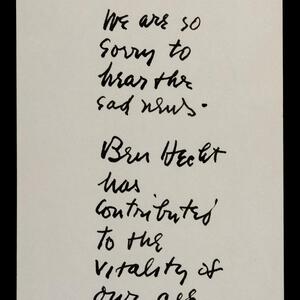 We are so
sorry to
hear the
sad news.
Ben Hecht
has
contributed
to the
vitality of
our age